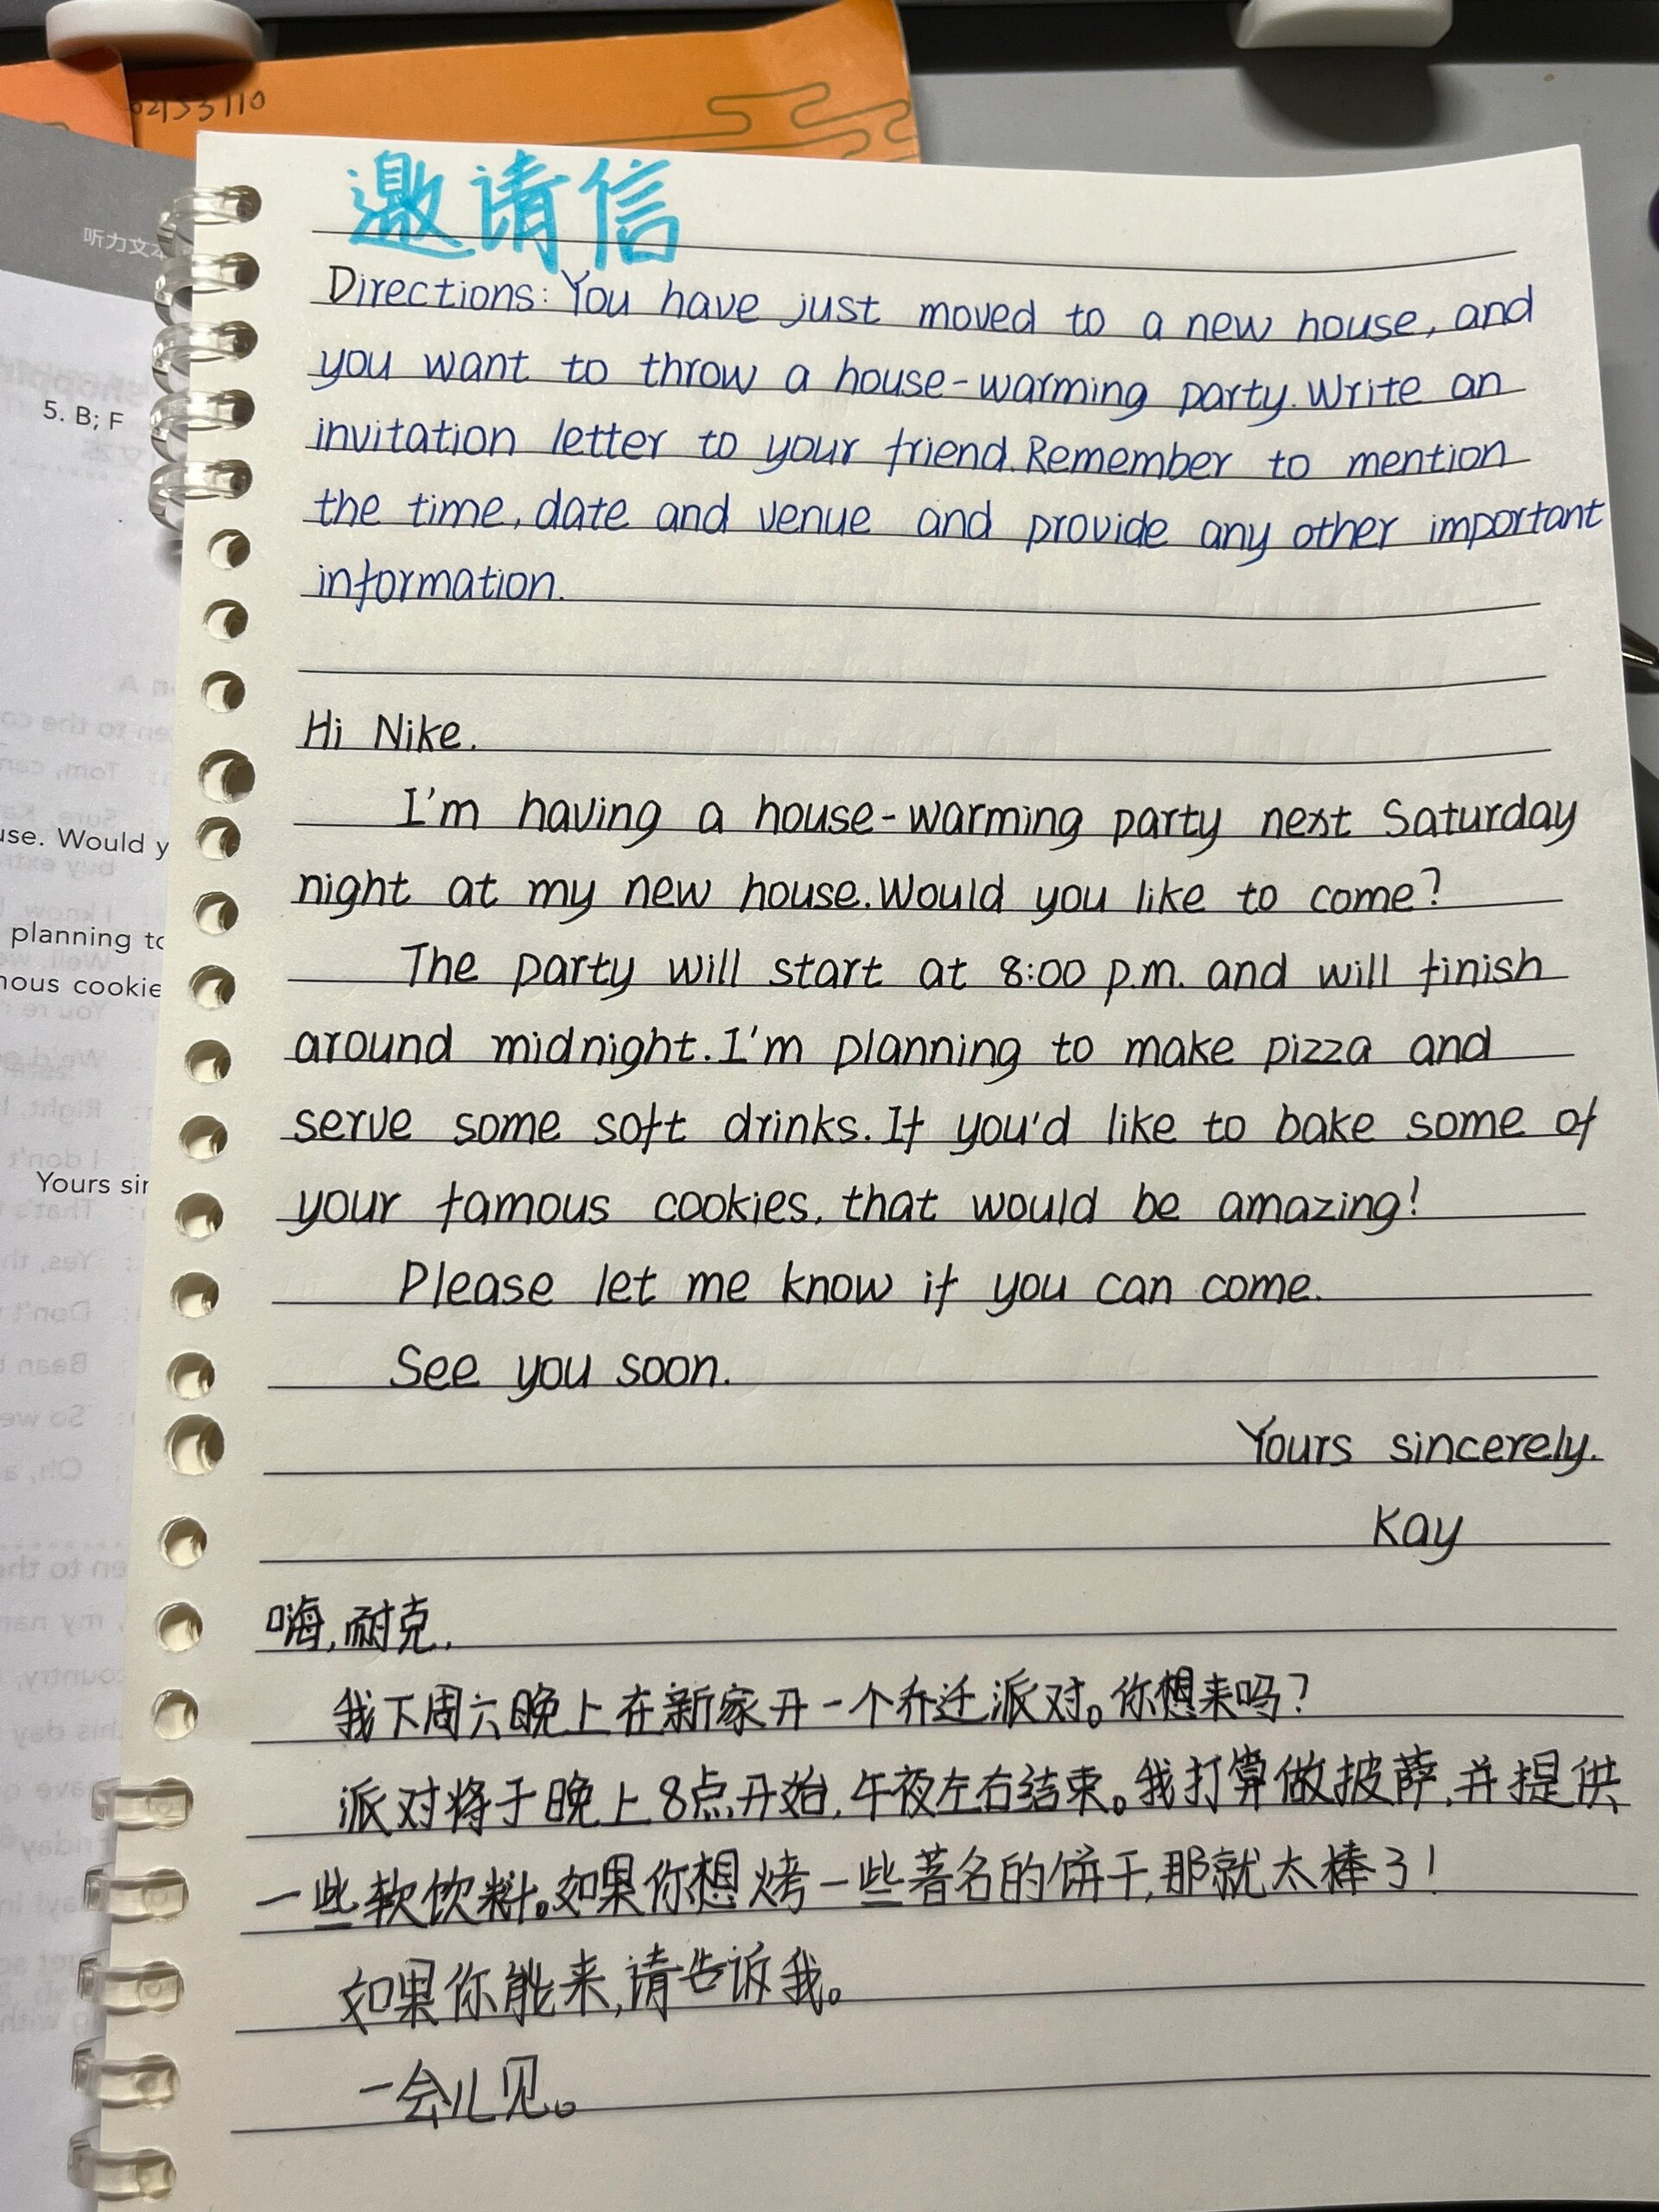 02153110
听力文本
5. B; F
use. Would y
planning to
nous cookie
Yours sir
邀请信
Directions: You have just moved to a new house, and
you want to throw a house-warming party. Write an
invitation letter to your friend. Remember to mention
the time, date and venue and provide any other important
information.
Hi Nike.
I'm having a house-warming party next Saturday
night at my new house. Would you like to come?
The party will start at 8:00 p.m. and will finish
around midnight. I'm planning to make pizza and
serve some soft drinks. If you'd like to bake some of
your famous cookies, that would be amazing!
Please let me know if you can come.
See you soon.
Yours sincerely.
Kay
嗨,耐克.
我下周六晚上在新家开一个乔迁派对。你想来吗?
派对将于晚上8点开始,午夜左右结束。我打算做披萨,并提供
一些软饮料。如果你想烤一些著名的饼干,那就太棒了!
如果你能来,请告诉我。
一会儿见。